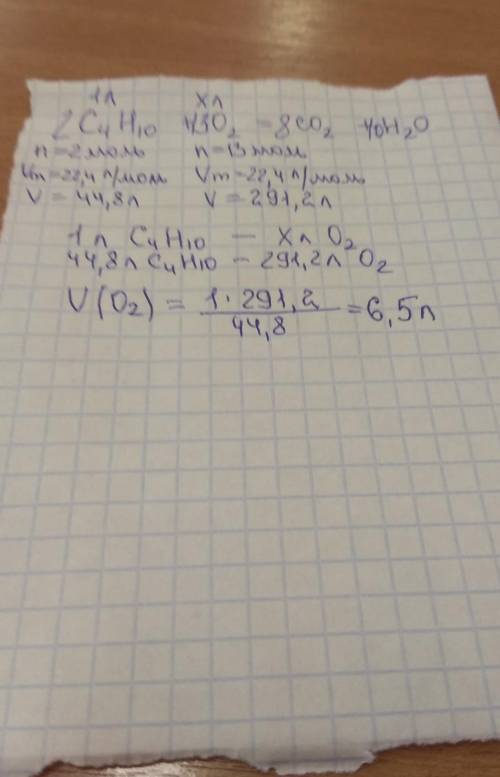 1л хл
2C₄H₁₀ +13O₂ = 8CO₂ +10H₂O
n=2моль n=13моль
Vm=22,4л/моль Vm=22,4л/моль
V=44,8л V=291,2л
1л C₄H₁₀ — хл O₂
44,8л C₄H₁₀ – 291,2л O₂
V(O₂) = 1·291,2 / 44,8 = 6,5л